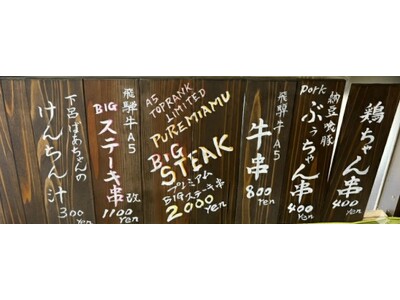 鶏ちゃん串
400yen
納豆喰豚
Pork
ぶぅちゃん串
400yen
飛騨牛A5
牛串
800yen
A5
TOPRANK
LIMITED
PUREMIAMU
BIG
STEAK
プレミアム
BIGステーキ串
2000yen
飛騨牛A5
BIG
ステーキ串
改
1100yen
下呂ばあちゃんの
けんちん汁
300yen